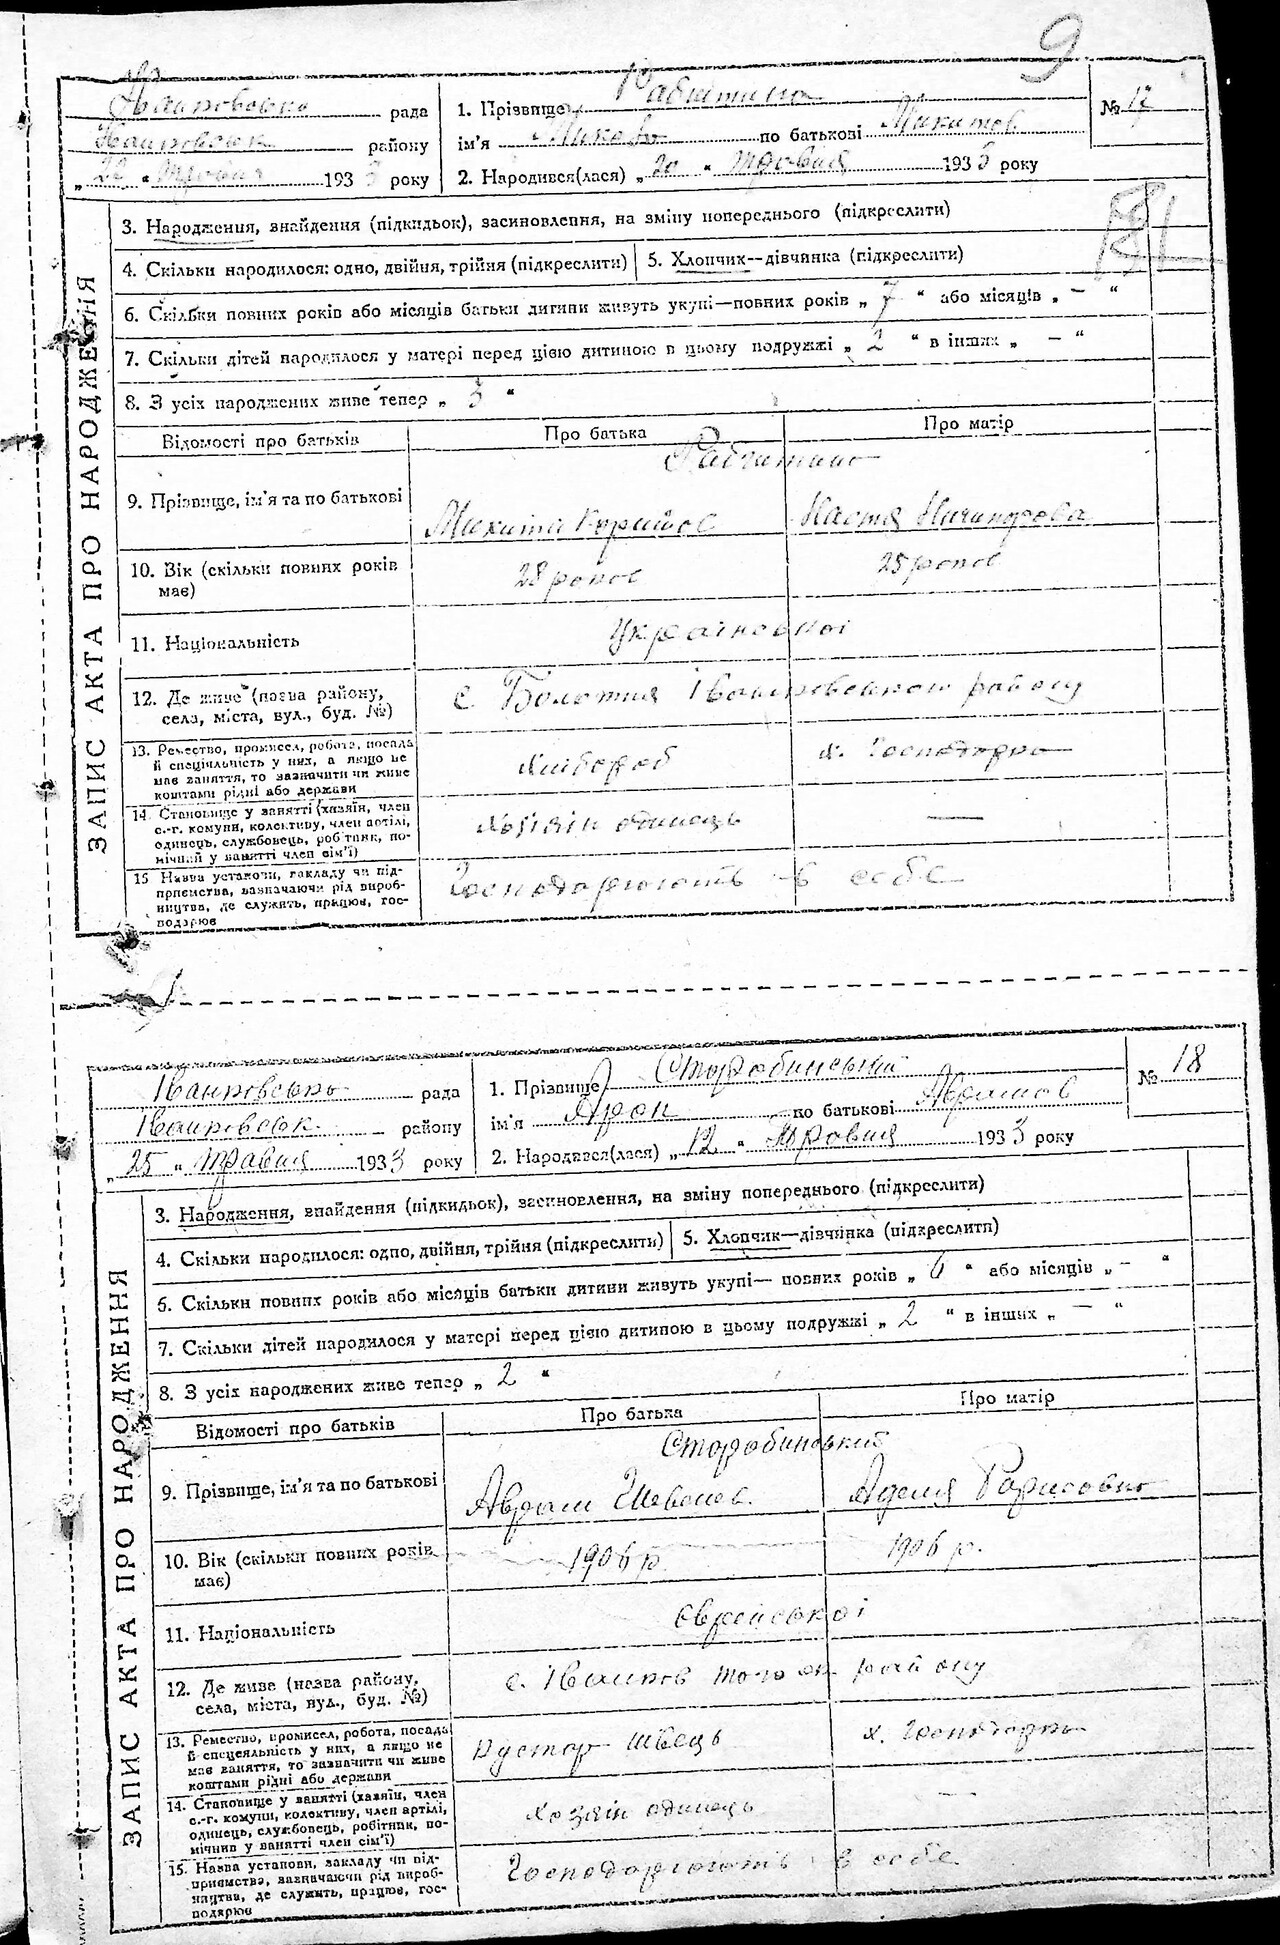 9
рада
району
193 3 року
1. Прізвище
ім'я Микола по батькові Микитов.
2. Народився(лася) „ 20 “ травня 1933 року
№ 17
ЗАПИС АКТА ПРО НАРОДЖЕННЯ
3. Народження, знайдення (підкидьок), засиновлення, на зміну попереднього (підкреслити)
4. Скільки народилося: одно, двійня, трійня (підкреслити)
5. Хлопчик—дівчинка (підкреслити)
6. Скільки повних років або місяців батьки дитини живуть укупі—повних років „ 7 “ або місяців „ — “
7. Скільки дітей народилося у матері перед цією дитиною в цьому подружжі „ 2 “ в інших „ — “
8. З усіх народжених живе тепер „ 3 “
Відомості про батьків
Про батька
Про матір
9. Прізвище, ім'я та по батькові
Микита
Настя Ничипорова
10. Вік (скільки повних років має)
28 років
25 років
11. Національність
Української
12. Де живе (назва району, села, міста, вул., буд. №)
с Болотня Іванковського району
13. Ремество, промисел, робота, посада
й спеціяльність у них, а якщо не
має заняття, то зазначити чи живе
коштами рідні або держави
хлібороб
х. Господарка
14. Становище у занятті (хазяїн, член
с.-г. комуни, колективу, член артілі,
одинець, службовець, робітник, по-
мічний у занятті член сім'ї)
хозяїн одинець
—
15 Назва установи, закладу чи під-
приємства, зазначаючи рід вироб-
ництва, де служить, працює, гос-
подарює
Господарюють в себе
рада
Іванковськ. району
„ 25 “ травня 193 3 року
1. Прізвище Старобинський
ім'я Арон по батькові Аврамов
2. Народився(лася) „ 12 “ травня 193 3 року
№ 18
ЗАПИС АКТА ПРО НАРОДЖЕННЯ
3. Народження, знайдення (підкидьок), засиновлення, на зміну попереднього (підкреслити)
4. Скільки народилося: одно, двійня, трійня (підкреслити)
5. Хлопчик—дівчинка (підкреслити)
6. Скільки повних років або місяців батьки дитини живуть укупі— повних років „ 6 “ або місяців „ — “
7. Скільки дітей народилося у матері перед цією дитиною в цьому подружжі „ 2 “ в інших „ — “
8. З усіх народжених живе тепер „ 2 “
Відомості про батьків
Про батька
Про матір
Старобинський
9. Прізвище, ім'я та по батькові
Аврам
10. Вік (скільки повних років має)
1906 р.
1906 р.
11. Національність
Єврейської
12. Де живе (назва району, села, міста, вул., буд. №)
с. Іванков того ж району
13. Ремество, промисел, робота, посада
й спецеяльність у них, а якщо не
має заняття, то зазначити чи живе
коштами рідні або держави
кустар швець
х. Господарка
14. Становище у занятті (хазяїн, член
с.-г. комуни, колективу, член артілі,
одинець, службовець, робітник, по-
мічник у занятті член сім'ї)
хозяїн одинець
—
15. Назва установи, закладу чи під-
приємства, зазначаючи рід вироб-
ництва, де служить, працює, гос-
подарює
Господарюють в себе